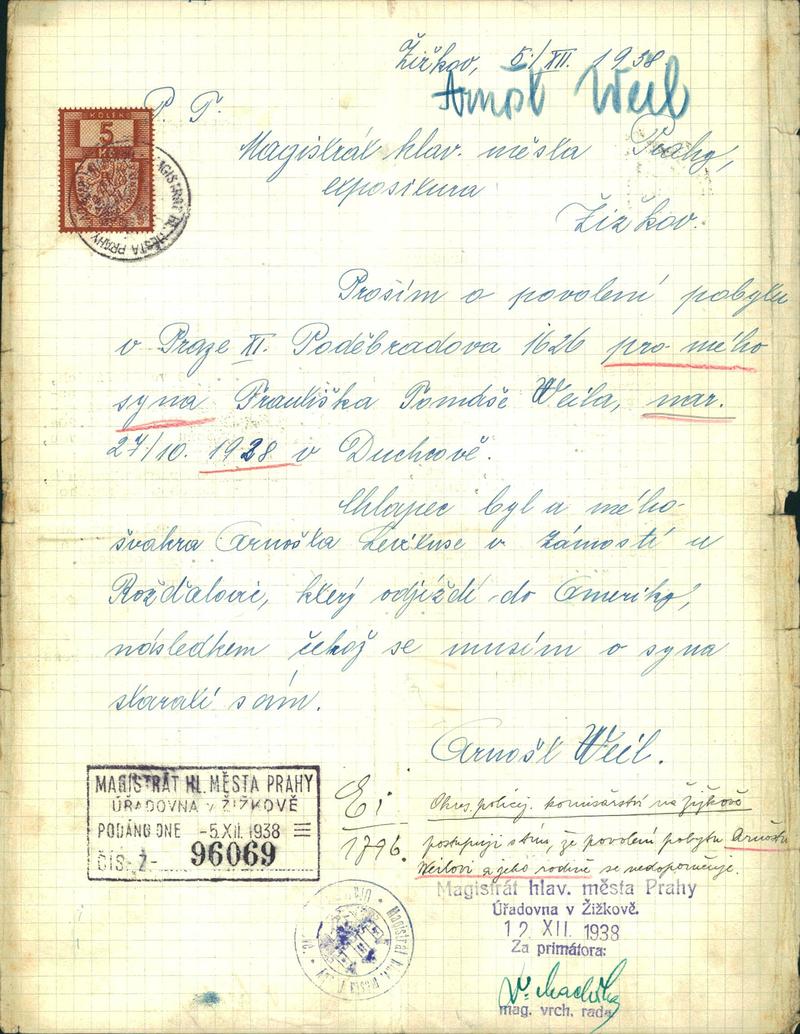 Žižkov, 5./XII. 1938
Arnošt Weil
P. T.
KOLEK
5
Kč
MAGISTRÁT HL. MĚSTA PRAHY
Magistrát hlav. města Prahy,
exposikura
Žižkov.
Prosím o povolení pobytu
v Praze XI. Poděbradova 1626 pro mého
syna Františka Tomáše Weila, nar.
27/10. 1928 v Duchcově.
Chlapec byl u mého
švakra Arnošta in v Zámostí u
Rožďalovic, který odjíždí do Ameriky,
následkem čehož se musím o syna
starati sám.
Arnošt Weil.
MAGISTRÁT HL. MĚSTA PRAHY
ÚŘADOVNA v ŽIŽKOVĚ
PODÁNO DNE -5.XII.1938
ČÍS. Ž- 96069
Ei
1796.
Okres. policej. komisařství na Žižkově
postupuji s tím, že povolení pobytu Arnoštu
Weilovi a jeho rodině se nedoporučuje.
Magistrát hlav. města Prahy
Úřadovna v Žižkově.
12 XII. 1938
Za primátora:
mag. vrch. rada
Magistrát hl. města Prahy